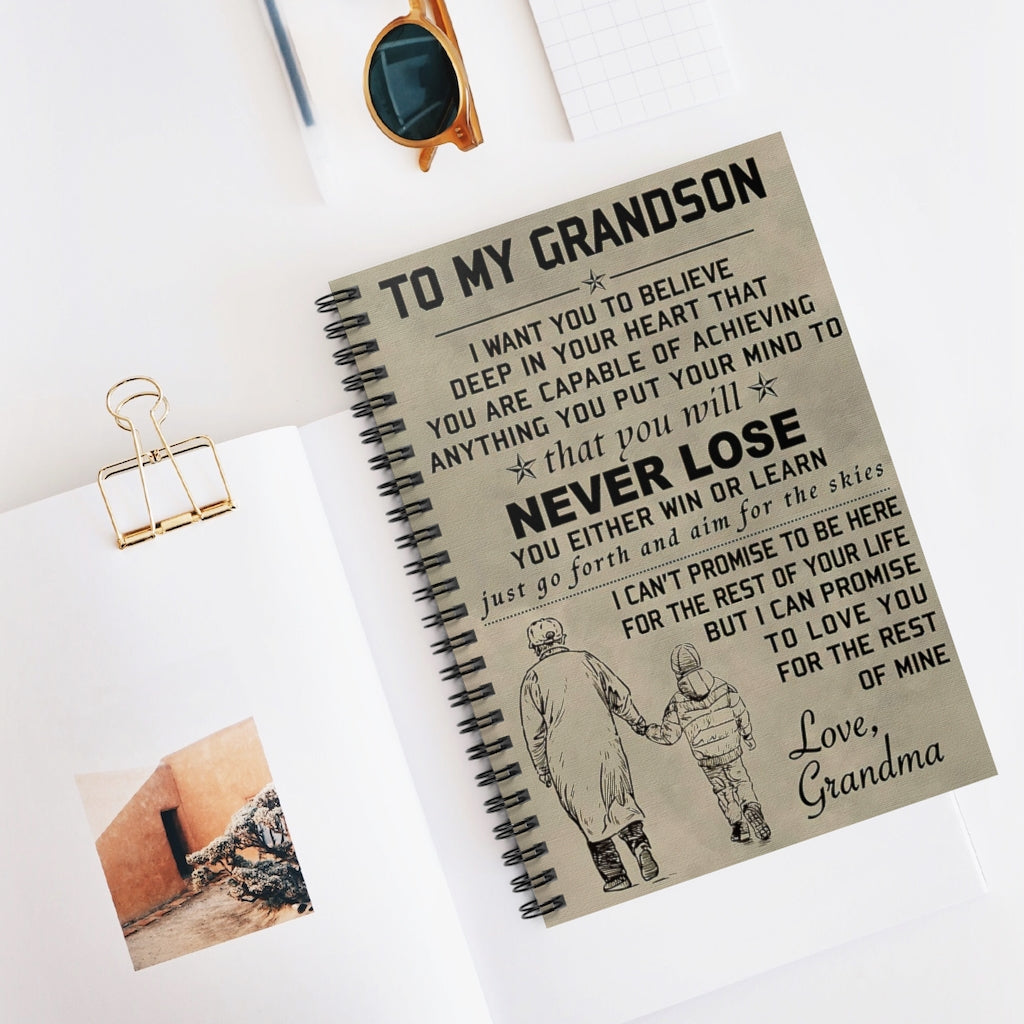 TO MY GRANDSON
I WANT YOU TO BELIEVE
DEEP IN YOUR HEART THAT
YOU ARE CAPABLE OF ACHIEVING
ANYTHING YOU PUT YOUR MIND TO
that you will
NEVER LOSE
YOU EITHER WIN OR LEARN
just go forth and aim for the skies
I CAN'T PROMISE TO BE HERE
FOR THE REST OF YOUR LIFE
BUT I CAN PROMISE
TO LOVE YOU
FOR THE REST
OF MINE
Love,
Grandma